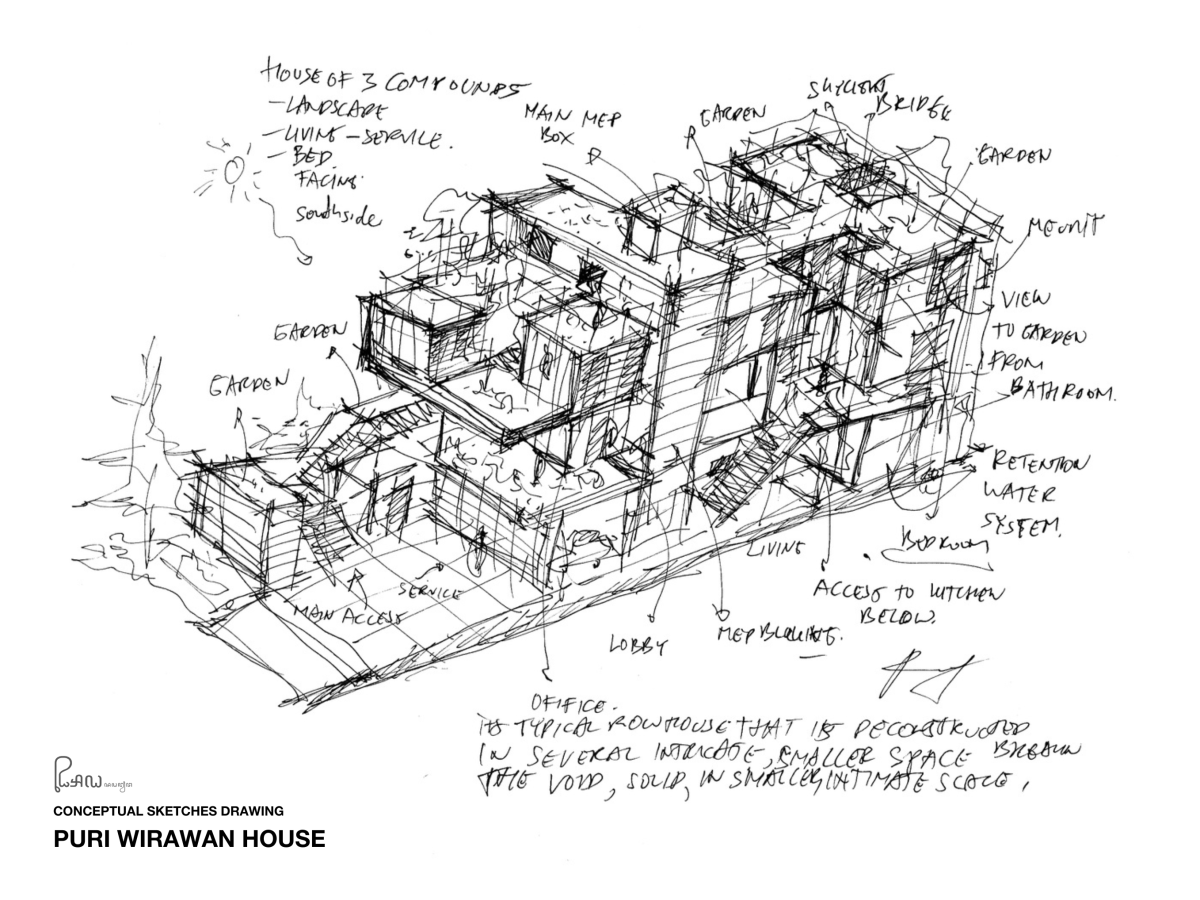 HOUSE OF 3 COMPOUNDS
- LANDSCAPE
- LIVING - SERVICE.
- BED.
FACING
Southside
MAIN MEP
BOX
GARDEN
SKYLIGHT
BRIDGE
GARDEN
VIEW
TO GARDEN
FROM
BATHROOM.
GARDEN
GARDEN
RETENTION
WATER
SYSTEM.
BEDROOM
LIVING
ACCESS TO KITCHEN
BELOW.
SERVICE
MAIN ACCESS
LOBBY
MEP
OFIFICE.
TYPICAL ROWHOUSE THAT IS DECONSTRUCTED
IN SEVERAL INTRICATE, SMALLER SPACE
THE VOID, SOLID, IN SMALLER, INTIMATE SCALE,
CONCEPTUAL SKETCHES DRAWING
PURI WIRAWAN HOUSE